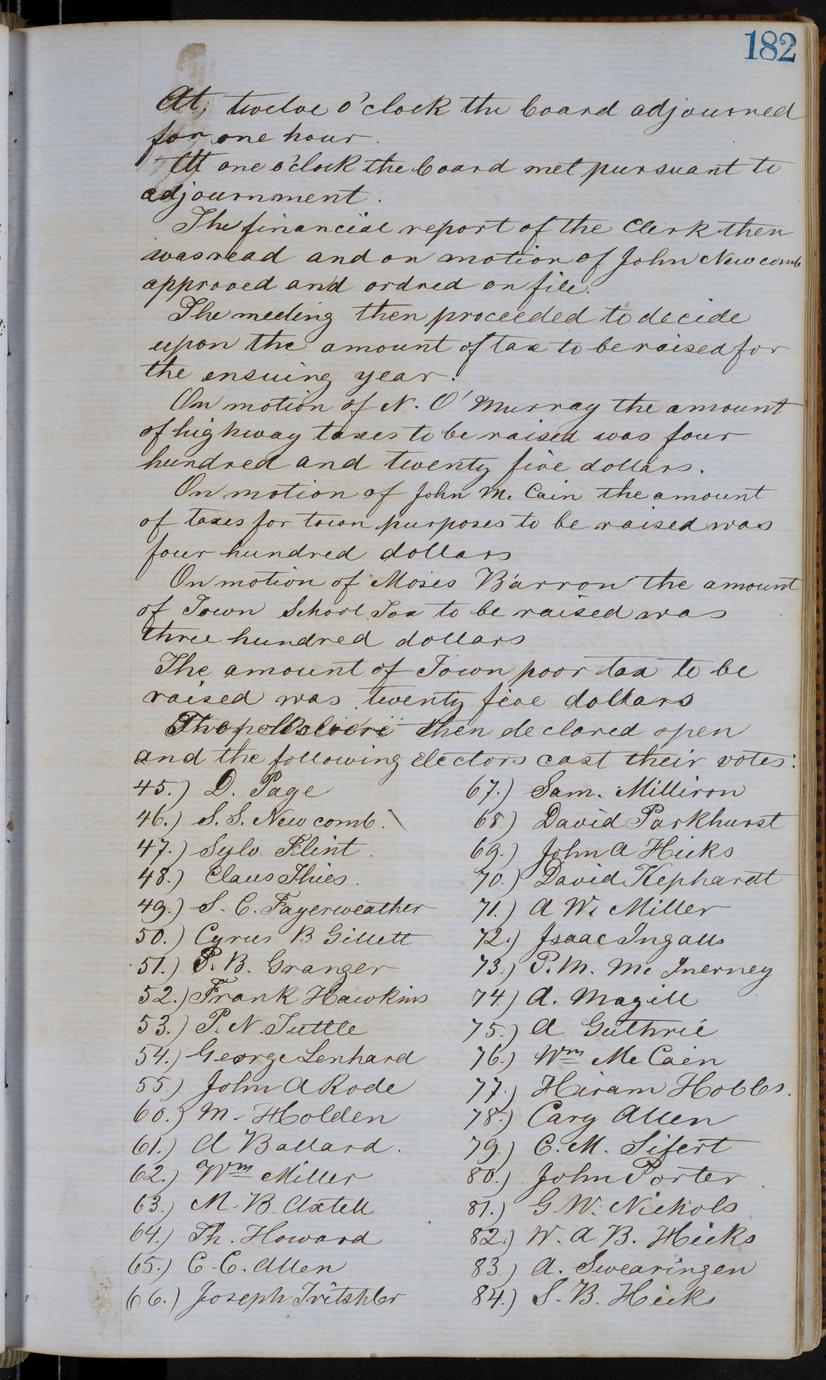 182
At, twelve o'clock the board adjourned
for one hour.
At one o'clock the board met pursuant to
adjournment.
The financial report of the Clerk then
was read and on motion of John Newcomb
approved and ordred on file.
The meeting then proceeded to decide
upon the amount of tax to be raised for
the ensuing year.
On motion of N. O' Murray the amount
of highway taxes to be raised was four
hundred and twenty five dollars.
On motion of John Mc Cain the amount
of taxes for town purposes to be raised was
four hundred dollars
On motion of Moses Barron the amount
of Town School Tax to be raised was
three hundred dollars
The amount of Town poor tax to be
raised was twenty five dollars
The polls were then declared open
and the following electors cast their votes:
45.) D. Page
46.) S. S. Newcomb.
47.) Sylv Flint.
48.) Claus Thies.
49.) S. C. Fayerweather
50.) Cyrus B Gillett
51.) P. B. Granger
52.) Frank Hawkins
53.) P. N. Tuttle
54.) George Lenhard
55) John A Rode
60.) M. Holden
61.) A Ballard.
62.) Wm Miller
63.) M. B. Axtell
64.) Th. Howard
65.) C. C. Allen
66.) Joseph Tritshler
67.) Sam. Milliron
68.) David Parkhurst
69.) John A Hicks
70.) David Kephardt
71.) A W. Miller
72.) Isaac Ingalls
73.) P. M. Mc Inerney
74.) A. Magill
75.) A Guthrie
76.) Wm Mc Cain
77.) Hiram Hobbs.
78.) Cary Allen
79.) C. M. Sifert
80.) John Porter
81.) G. W. Nichols
82.) W. A B. Hicks
83.) A. Swearingen
84.) S. B. Hicks